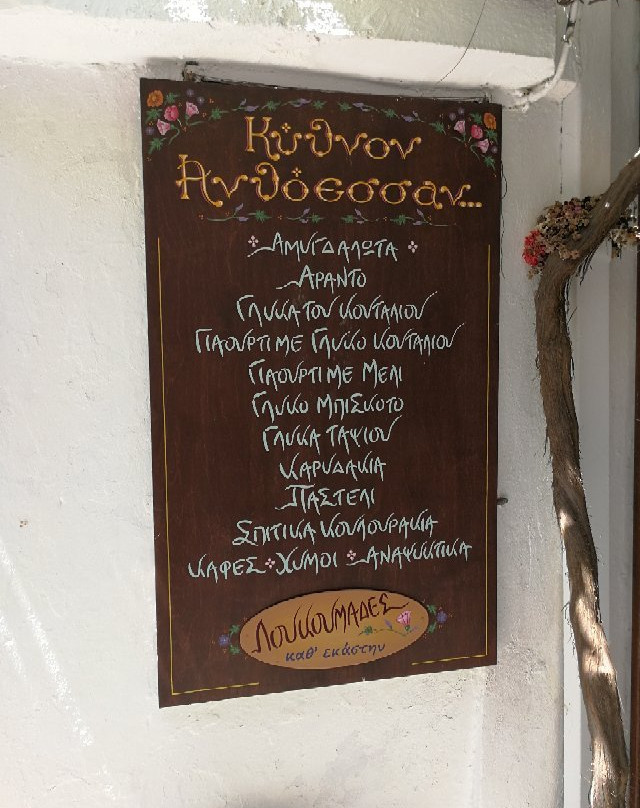 Κύθνον
Ανθόεσσαν...
ΑΜΥΓΔΑΛΩΤΑ
ΑΡΑΝΤΟ
ΓΛΥΚΑ ΤΟΥ ΚΟΥΤΑΛΙΟΥ
ΓΙΑΟΥΡΤΙ ΜΕ ΓΛΥΚΟ ΚΟΥΤΑΛΙΟΥ
ΓΙΑΟΥΡΤΙ ΜΕ ΜΕΛΙ
ΓΛΥΚΟ ΜΠΙΣΚΟΤΟ
ΓΛΥΚΑ ΤΑΨΙΟΥ
ΚΑΡΥΔΑΚΙΑ
ΠΑΣΤΕΛΙ
ΣΠΙΤΙΚΑ ΚΟΥΛΟΥΡΑΚΙΑ
ΚΑΦΕΣ ΧΥΜΟΙ ΑΝΑΨΥΚΤΙΚΑ
ΛΟΥΚΟΥΜΑΔΕΣ
καθ' εκάστην